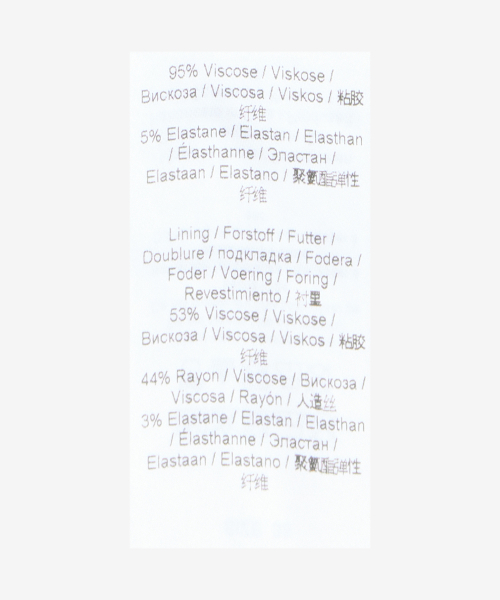 95% Viscose / Viskose /
Вискоза / Viscosa / Viskos / 粘胶
纤维
5% Elastane / Elastan / Elasthan
/ Élasthanne / Эластан /
Elastaan / Elastano / 聚氨酯弹性
纤维
Lining / Forstoff / Futter /
Doublure / подкладка / Fodera /
Foder / Voering / Foring /
Revestimiento / 衬里
53% Viscose / Viskose /
Вискоза / Viscosa / Viskos / 粘胶
纤维
44% Rayon / Viscose / Вискоза /
Viscosa / Rayón / 人造丝
3% Elastane / Elastan / Elasthan
/ Élasthanne / Эластан /
Elastaan / Elastano / 聚氨酯弹性
纤维